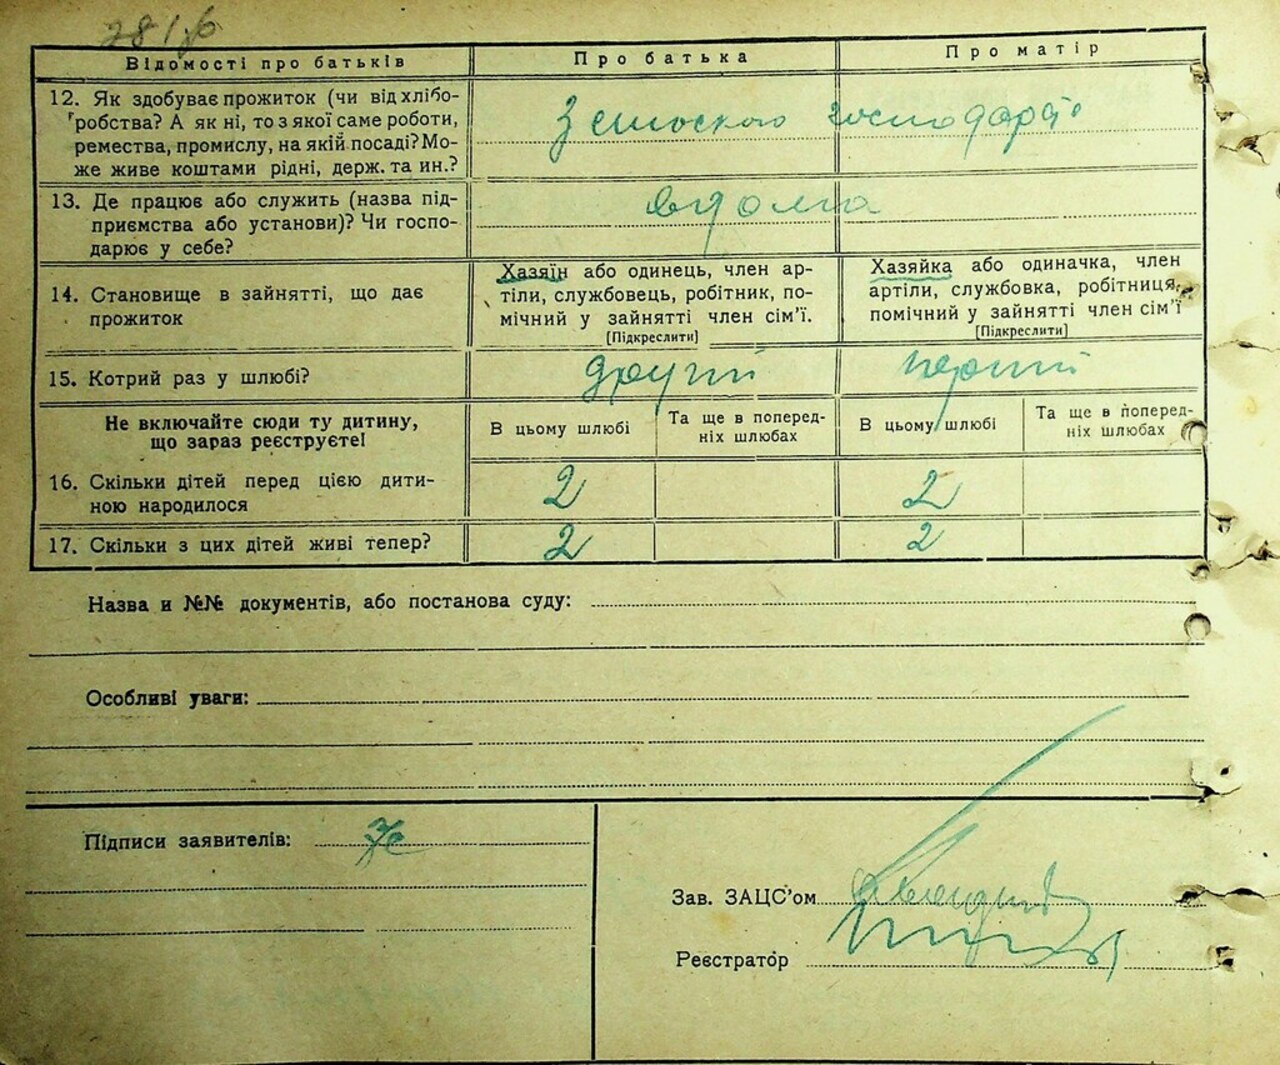 Відомості про батьків
Про батька
Про матір
12. Як здобуває прожиток (чи від хлібо-
робства? А як ні, то з якої саме роботи,
ремества, промислу, на якій посаді? Мо-
же живе коштами рідні, держ. та ин.?
З сільського господарст
13. Де працює або служить (назва під-
приємства або установи)? Чи госпо-
дарює у себе?
вдома
14. Становище в зайнятті, що дає
прожиток
Хазяїн або одинець, член ар-
тіли, службовець, робітник, по-
мічний у зайнятті член сім'ї.
[Підкреслити]
Хазяйка або одиначка, член
артіли, службовка, робітниця,
помічний у зайнятті член сім'ї
[Підкреслити]
15. Котрий раз у шлюбі?
другий
перший
Не включайте сюди ту дитину,
що зараз реєструєте!
В цьому шлюбі
Та ще в поперед-
ніх шлюбах
В цьому шлюбі
Та ще в поперед-
ніх шлюбах
16. Скільки дітей перед цією дити-
ною народилося
2
2
17. Скільки з цих дітей живі тепер?
2
2
Назва и №№ документів, або постанова суду:
Особливі уваги:
Підписи заявителів:
Зав. ЗАЦС'ом
Реєстратор